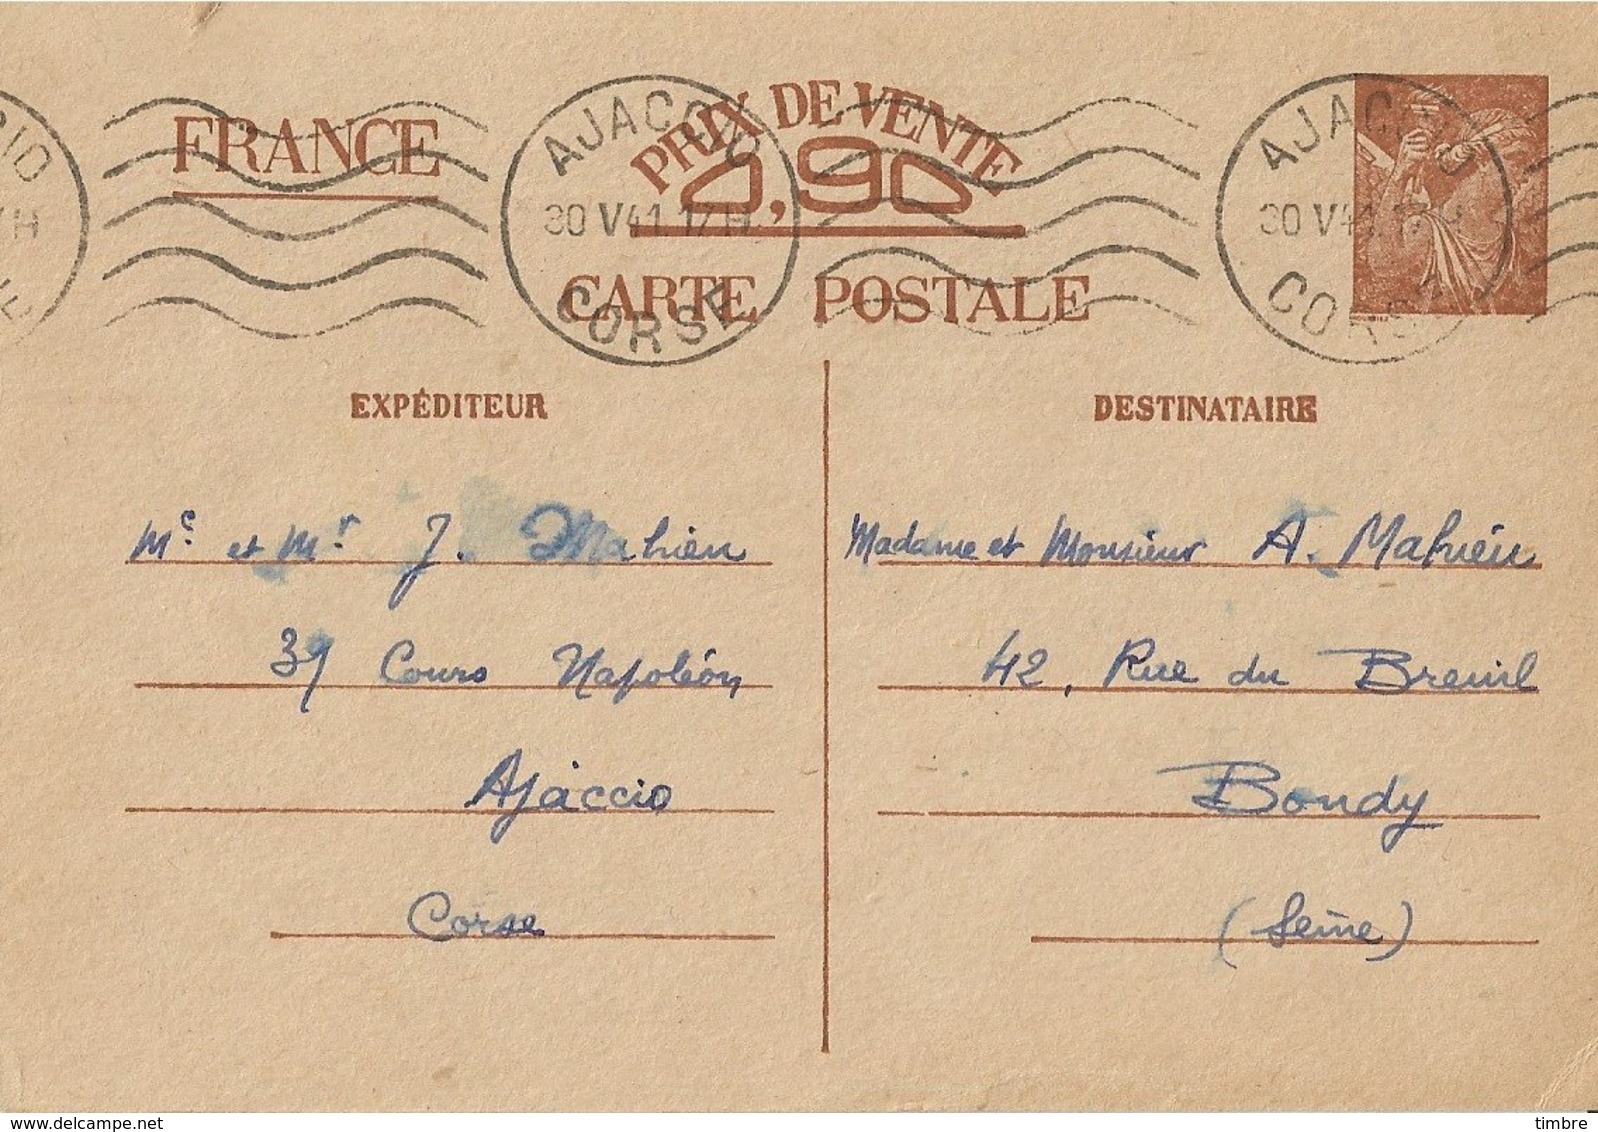 FRANCE
PRIX DE VENTE
0,90
CARTE POSTALE
AJACCIO
30 V 41 17 H
CORSE
AJACCIO
30 V 41 17 H
CORSE
EXPÉDITEUR
Me et Mr J. Mahieu
39 Cours Napoléon
Ajaccio
Corse
DESTINATAIRE
Madame et Monsieur A. Mahieu
42, Rue du Breuil
Bondy
(Seine)
www.delcampe.net
timbre